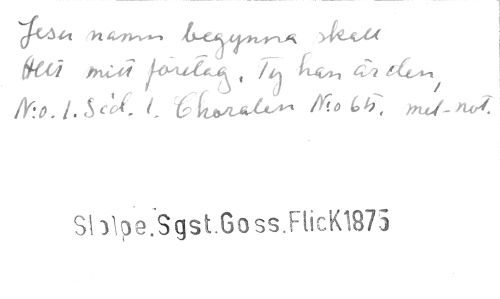 Jesu namn begynna skall
Allt mitt företag. Ty han är den,
N:o. 1. Sid. 1. Choralen N:o 65. mel-not.
Stolpe.Sgst.Goss.FlicK1875